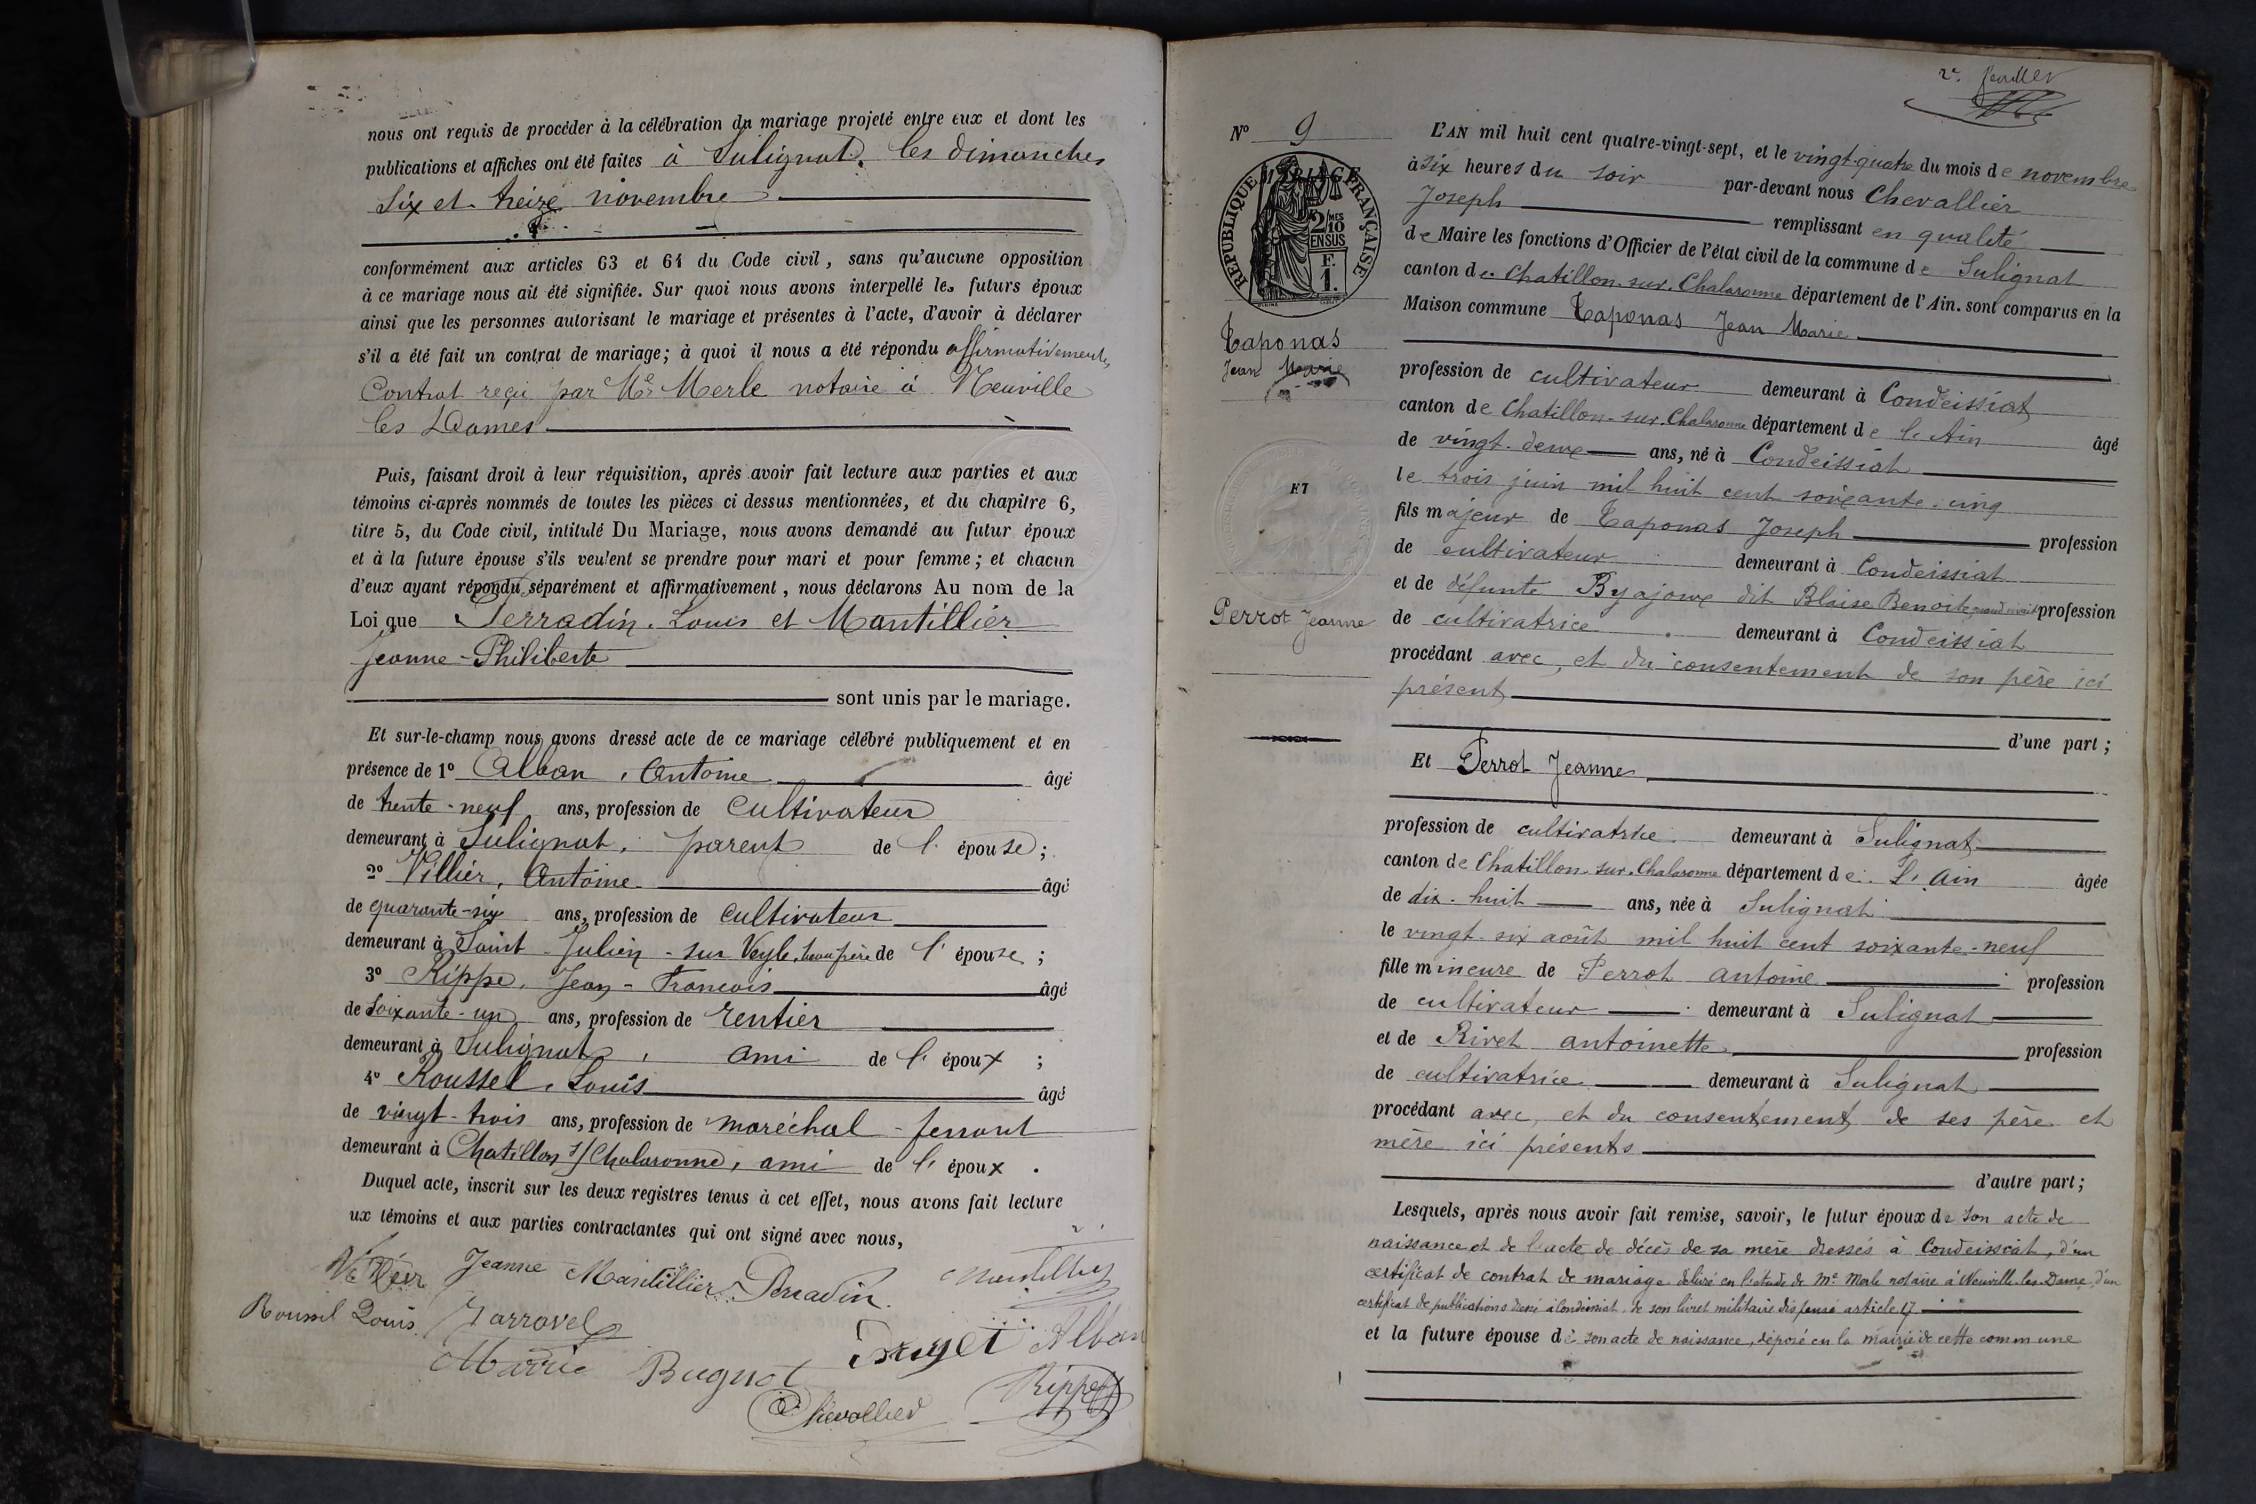 nous ont requis de procéder à la célébration du mariage projeté entre eux et dont les
publications et affiches ont été faites à Sulignat, les dimanches
Six et treize novembre
conformément aux articles 63 et 64 du Code civil, sans qu'aucune opposition
à ce mariage nous ait été signifiée. Sur quoi nous avons interpellé les futurs époux
ainsi que les personnes autorisant le mariage et présentes à l'acte, d'avoir à déclarer
s'il a été fait un contrat de mariage; à quoi il nous a été répondu affirmativement,
Contrat reçu par Me Merle notaire à Neuville
les Dames
Puis, faisant droit à leur réquisition, après avoir fait lecture aux parties et aux
témoins ci-après nommés de toutes les pièces ci dessus mentionnées, et du chapitre 6,
titre 5, du Code civil, intitulé Du Mariage, nous avons demandé au futur époux
et à la future épouse s'ils veulent se prendre pour mari et pour femme; et chacun
d'eux ayant répondu séparément et affirmativement, nous déclarons Au nom de la
Loi que Perradin. Louis et Mantillier
Jeanne-Philiberte
sont unis par le mariage.
Et sur-le-champ nous avons dressé acte de ce mariage célébré publiquement et en
présence de 1º Alban, Antoine âgé
de trente-neuf ans, profession de cultivateur
demeurant à Sulignat, parent de l' épouse;
2º Villier, Antoine âgé
de quarante-six ans, profession de cultivateur
demeurant à Saint-Julien-sur Veyle, beau père de l' épouse;
3º Rippe, Jean-Francois âgé
de soixante-un ans, profession de rentier
demeurant à Sulignat, ami de l' époux;
4º Roussel, Louis âgé
de vingt-trois ans, profession de maréchal-ferrant
demeurant à Chatillon s/ Chalaronne, ami de l' époux.
Duquel acte, inscrit sur les deux registres tenus à cet effet, nous avons fait lecture
ux témoins et aux parties contractantes qui ont signé avec nous,
Villier Jeanne Mantillier Perradin Mantillier
Roussel Louis Jarravel Alban
Marrie Buguot Rippe
Chevallier
2e feuillet
Nº 9
L'AN mil huit cent quatre-vingt-sept, et le vingt-quatre du mois de novembre
à six heures du soir par-devant nous Chevallier
Joseph remplissant en qualité
de Maire les fonctions d'Officier de l'état civil de la commune de Sulignat
canton de Chatillon-sur-Chalaronne département de l'Ain. sont comparus en la
Maison commune Taponas Jean Marie
RÉPUBLIQUE FRANÇAISE
2/10 MES
EN SUS
F.
1.
Taponas
Jean Marie
ET
Perrot Jeanne
profession de cultivateur demeurant à Condeissiat
canton de Chatillon-sur-Chalaronne département de l'Ain âgé
de vingt-deux ans, né à Condeissiat
le trois juin mil huit cent soixante-cinq
fils majeur de Taponas Joseph profession
de cultivateur demeurant à Condeissiat
et de défunte Byajoux dit Blaise Benoite, quand vivait profession
de cultivatrice demeurant à Condeissiat
procédant avec, et du consentement de son père ici
présent
d'une part;
Et Perrot Jeanne
profession de cultivatrice demeurant à Sulignat
canton de Chatillon-sur-Chalaronne département de L'Ain âgée
de dix-huit ans, née à Sulignat
le vingt-six août mil huit cent soixante-neuf
fille mineure de Perrot antoine profession
de cultivateur demeurant à Sulignat
et de Rivet antoinette profession
de cultivatrice demeurant à Sulignat
procédant avec, et du consentement de ses père et
mère ici présents
d'autre part;
Lesquels, après nous avoir fait remise, savoir, le futur époux de son acte de
naissance et de l'acte de décès de sa mère dressés à Condeissiat, d'un
certificat de contrat de mariage délivré en l'étude de Me Merle notaire à Neuville-les-Dames, d'un
certificat de publications dressé à Condeissiat, de son livret militaire dispensé article 17
et la future épouse de son acte de naissance, déposé en la mairie de cette commune